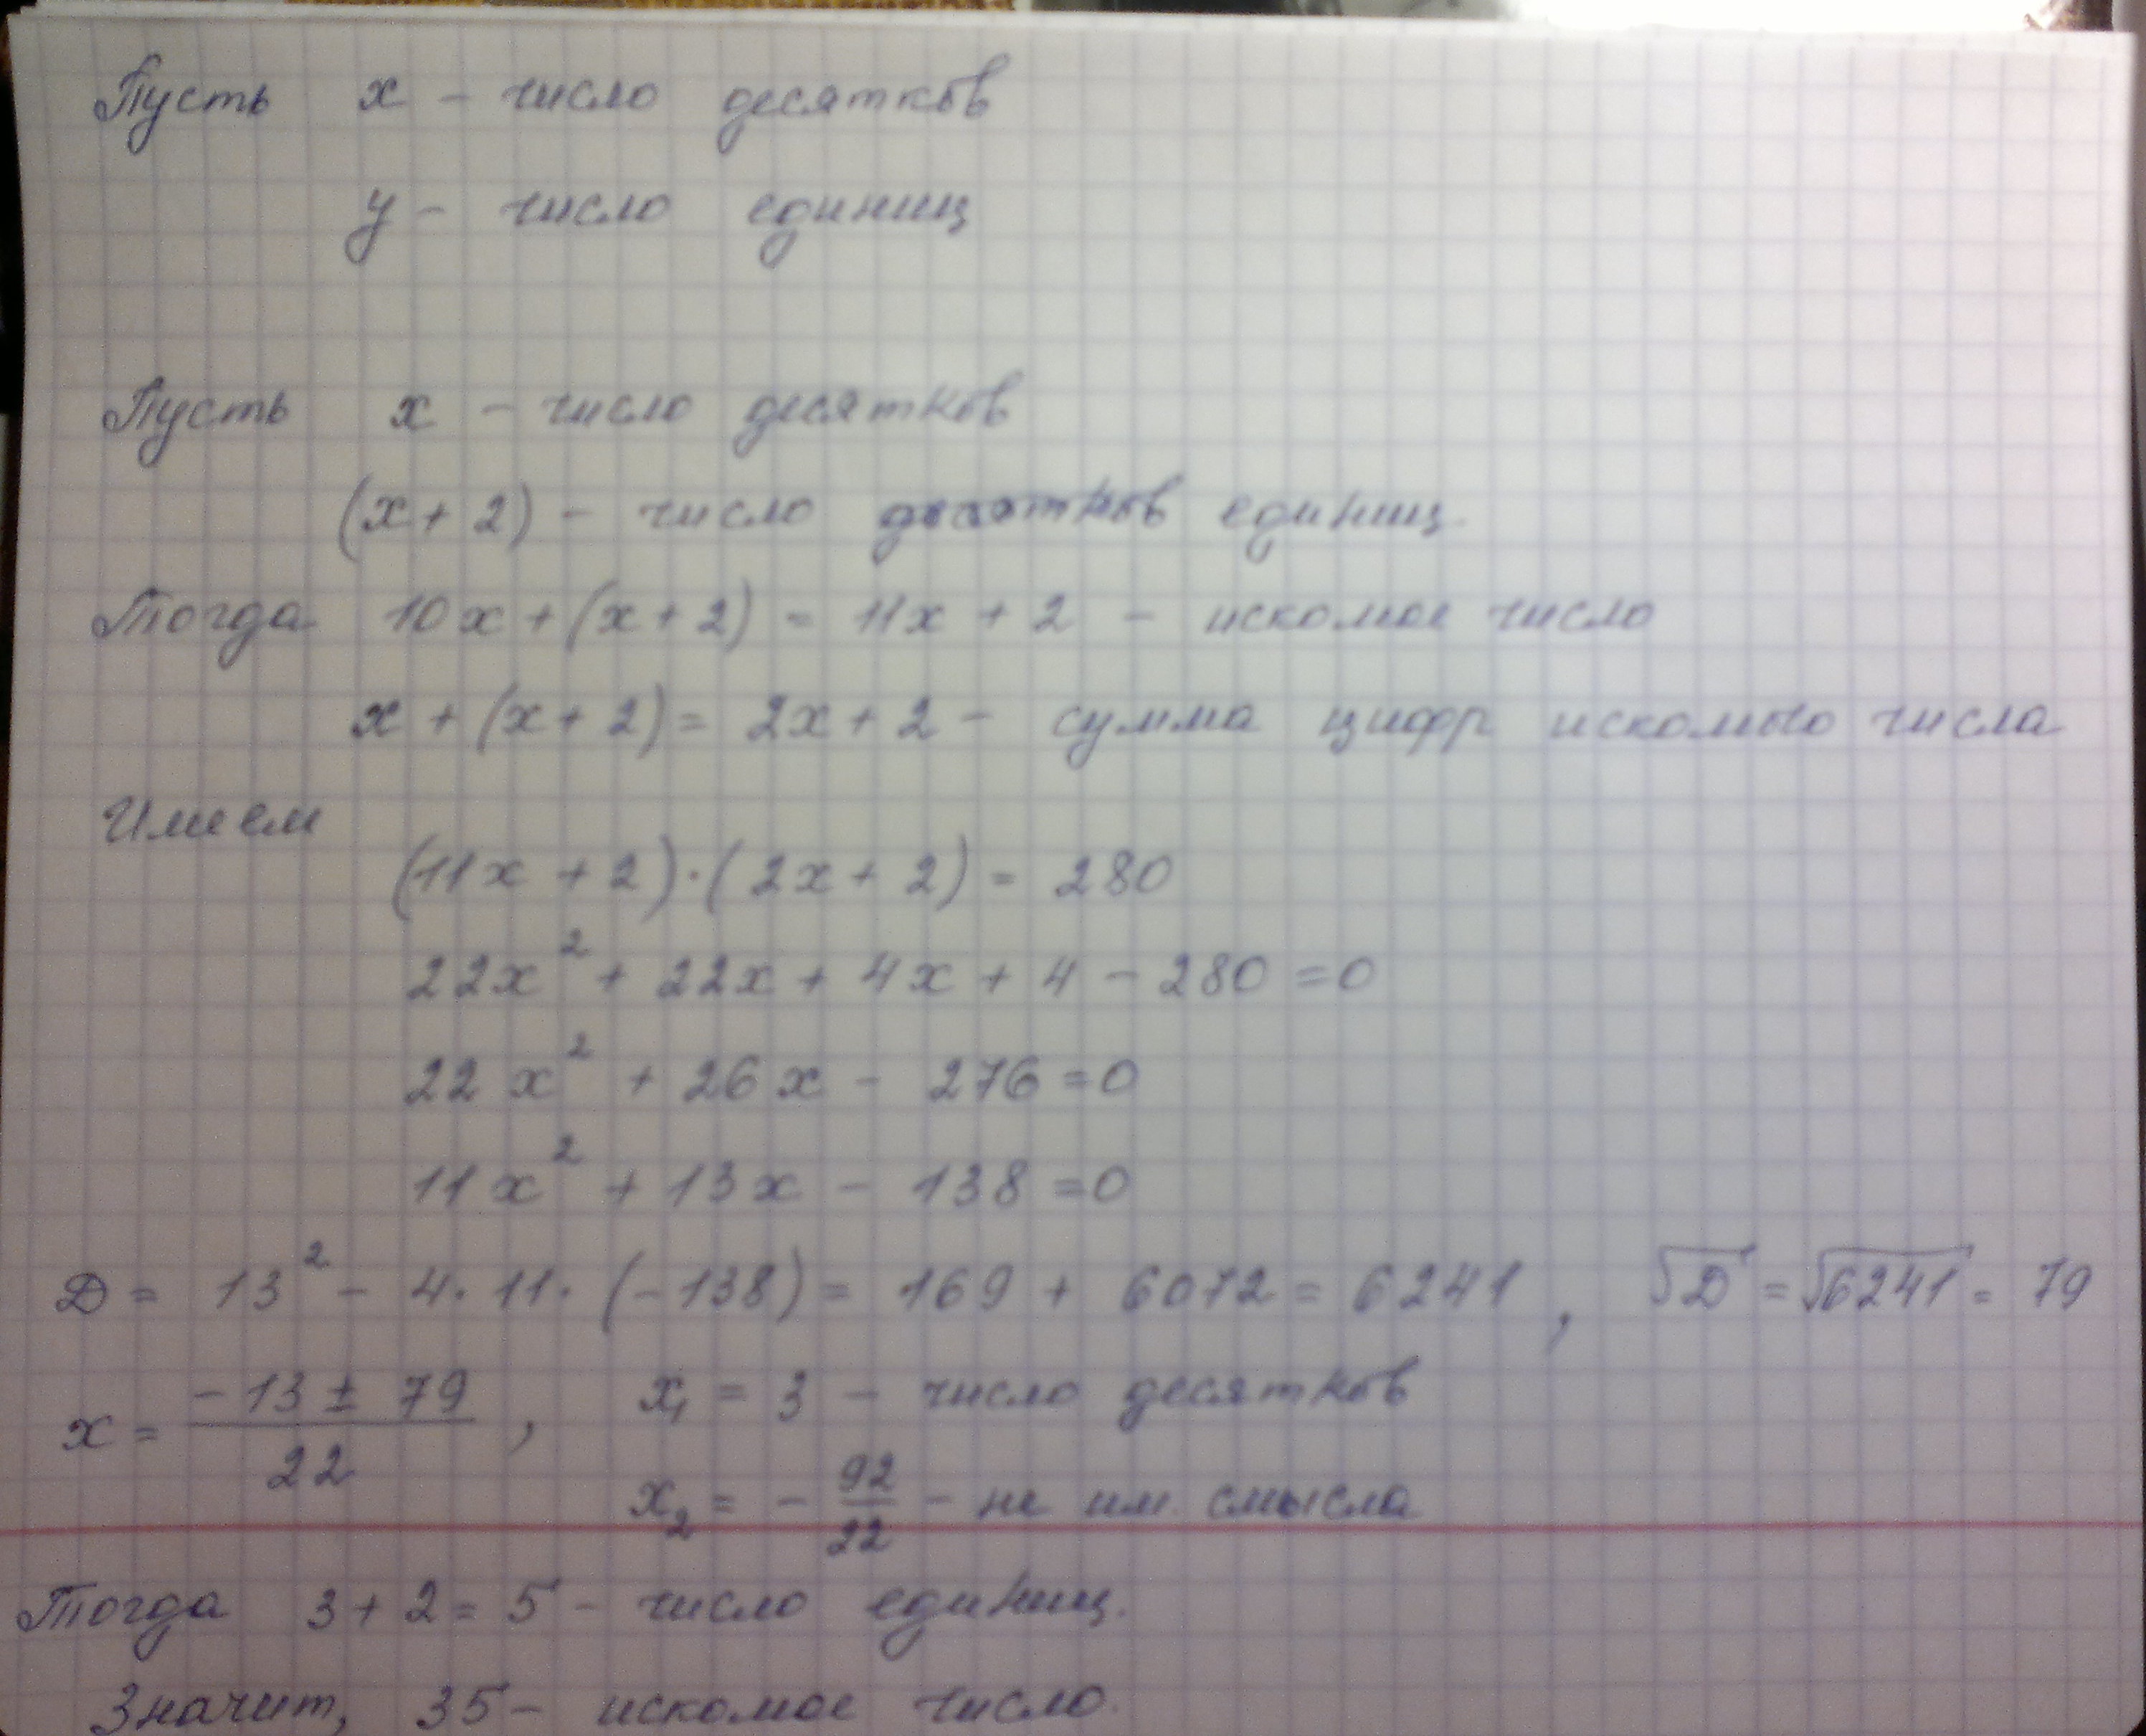 Пусть x - число десятков
y - число единиц
Пусть x - число десятков
(x + 2) - число десятков единиц.
Тогда 10x + (x + 2) = 11x + 2 - искомое число
x + (x + 2) = 2x + 2 - сумма цифр искомого числа
Имеем
(11x + 2) · (2x + 2) = 280
22x² + 22x + 4x + 4 - 280 = 0
22x² + 26x - 276 = 0
11x² + 13x - 138 = 0
D = 13² - 4 · 11 · (-138) = 169 + 6072 = 6241 , √D = √6241 = 79
x = (-13 ± 79)/22 , x₁ = 3 - число десятков
x₂ = - 92/22 - не им. смысла
Тогда 3 + 2 = 5 - число единиц.
Значит, 35 - искомое число.